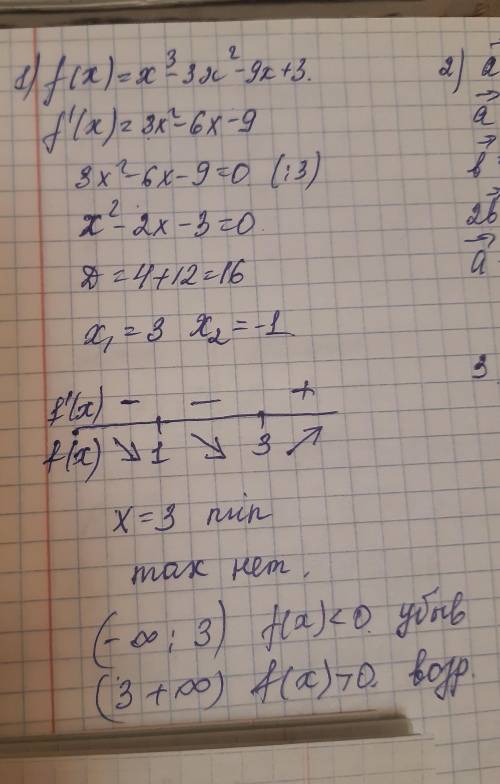 1) f(x)=x³-3x²-9x+3.
f'(x)=3x²-6x-9
3x²-6x-9=0 (:3)
x²-2x-3=0.
D=4+12=16
x₁=3 x₂=-1
f'(x) - - +
f(x) ↘ 1 ↘ 3 ↗
x=3 min
max нет.
(-∞; 3) f(x)<0. убыв
(3 +∞) f(x)>0. возр.
2) a⃗
a⃗
b⃗
2b⃗
a⃗
3